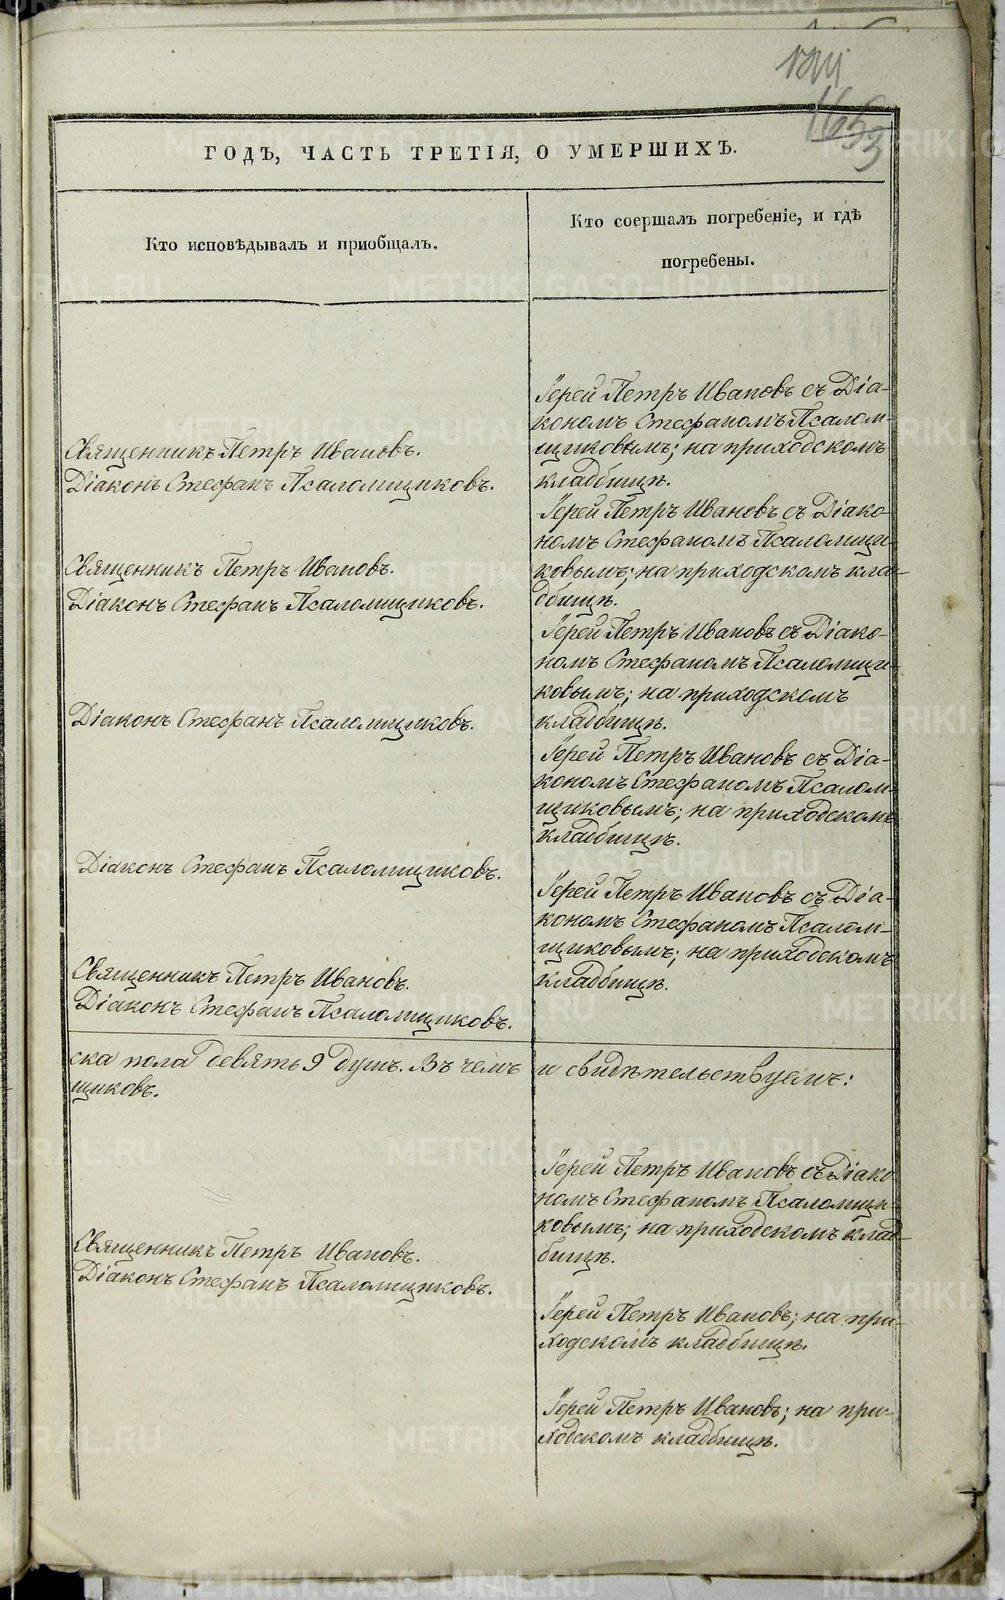 ГОДЪ, ЧАСТЬ ТРЕТІЯ, О УМЕРШИХЪ.
Кто исповѣдывалъ и пріобщалъ.
Кто соершалъ погребеніе, и гдѣ
погребены.
Священникъ Петръ Ивановъ.
Діаконъ Стефанъ Псаломщиковъ.
Іерей Петръ Ивановъ съ Діа-
кономъ Стефаномъ Псалом-
щиковымъ; на приходскомъ
кладбищѣ.
Священникъ Петръ Ивановъ.
Діаконъ Стефанъ Псаломщиковъ.
Іерей Петръ Ивановъ съ Діако-
номъ Стефаномъ Псаломщи-
ковымъ; на приходскомъ кла-
дбищѣ.
Діаконъ Стефанъ Псаломщиковъ.
Іерей Петръ Ивановъ съ Діако-
номъ Стефаномъ Псаломщи-
ковымъ; на приходскомъ
кладбищѣ.
Діаконъ Стефанъ Псаломщиковъ.
Іерей Петръ Ивановъ съ Діа-
кономъ Стефаномъ Псалом-
щиковымъ; на приходскомъ
кладбищѣ.
Священникъ Петръ Ивановъ.
Діаконъ Стефанъ Псаломщиковъ.
Іерей Петръ Ивановъ съ Діа-
кономъ Стефаномъ Псалом-
щиковымъ; на приходскомъ
кладбищѣ.
ска пола девять 9 душъ. Въ чемъ и свидѣтельствуемъ:
щиковъ.
Священникъ Петръ Ивановъ.
Діаконъ Стефанъ Псаломщиковъ.
Іерей Петръ Ивановъ съ Діако-
номъ Стефаномъ Псаломщи-
ковымъ; на приходскомъ клад-
бищѣ.
Іерей Петръ Ивановъ; на при-
ходскомъ кладбищѣ.
Іерей Петръ Ивановъ; на при-
ходскомъ кладбищѣ.
METRIKI.GASO-URAL.RU